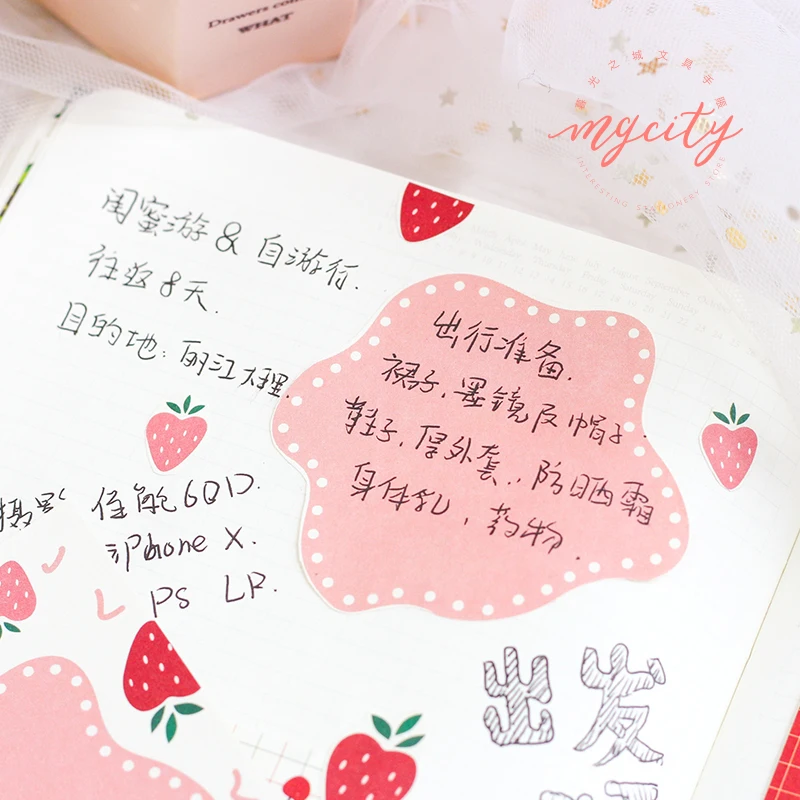 Drawers
WHAT
暮光之城文具乐園
mycity
INTERESTING STATIONERY STORE
闺蜜游 & 自游行.
往返8天.
目的地: 丽江大理
出行准备.
裙子, 墨镜及帽子.
鞋子, 厚外套, 防晒霜
身体乳, 药物.
佳能60D.
iPhone X.
PS LR.
出发